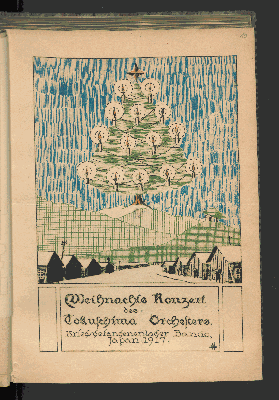 Weihnachts Konzert
des
Tokuschima Orchesters.
Kriegsgefangenenlager Bando,
Japan 1917.